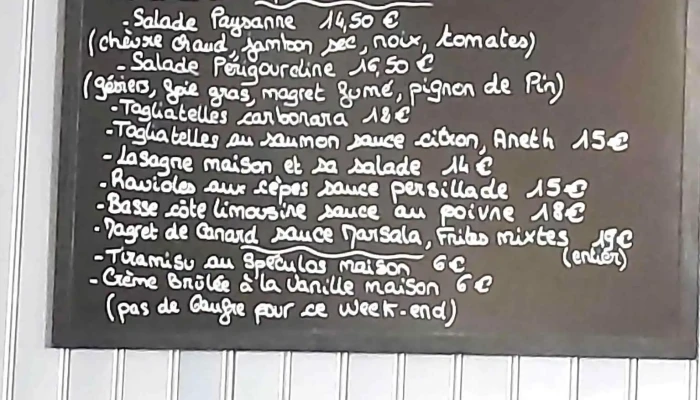 - Salade Paysanne 14,50 €
(chèvre chaud, jambon sec, noix, tomates)
- Salade Périgourdine 16,50 €
(gésiers, foie gras, magret fumé, pignon de Pin)
- Tagliatelles carbonara 12€
- Tagliatelles au saumon sauce citron, Aneth 15€
- Lasagne maison et sa salade 14 €
- Ravioles aux cèpes sauce persillade 15€
- Basse côte limousine sauce au poivre 18€
- Magret de Canard sauce Marsala, Frites mixtes 19€
(entier)
- Tiramisu au Speculos maison 6€
- Crème Brûlée à la Vanille maison 6€
(pas de Gaufre pour ce week-end)